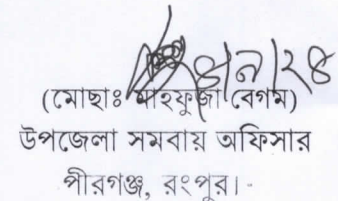 ৪/৯/২৪
(মোছাঃ মাহফুজা বেগম)
উপজেলা সমবায় অফিসার
পীরগঞ্জ, রংপুর।